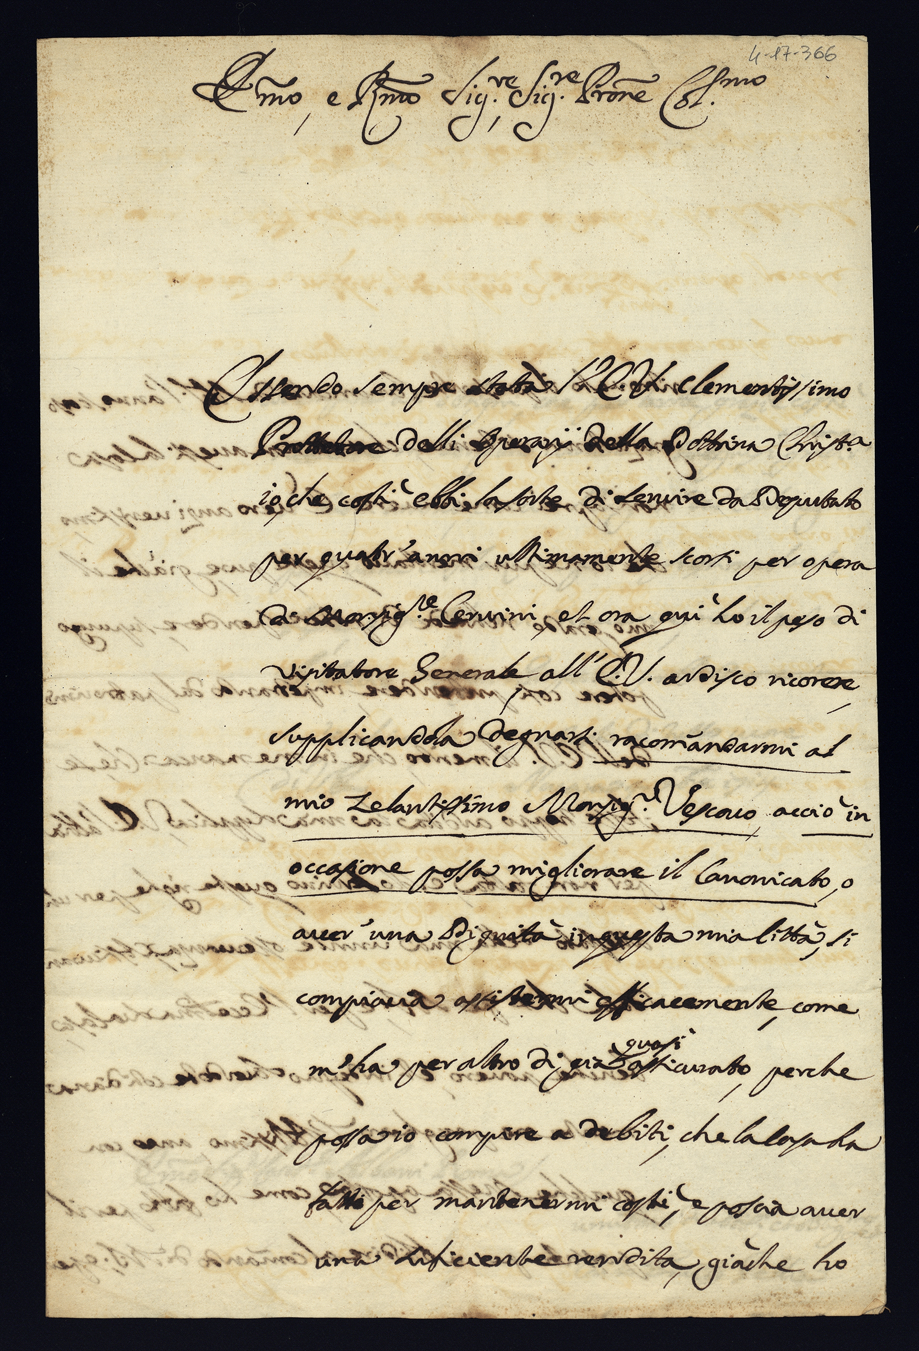 4-17-366
Emo, e Rmo Sig.re, Sig.re Prone Col.mo
Essendo sempre stata l'E.V. clementissimo
Protettore delli Operarij della Dottrina Christ.a
io, che costì ebbi la sorte di servire da Deputato
per quatr'anni ultimamente scorsi per opera
di Monsig.re Cervini, et ora quì hò il peso di
Visitatore Generale all'E.V. ardisco ricorere,
supplicandola degnarsi racomandarmi al
mio zelantissimo Monsig.r Vescovo, acciò in
occasione possa migliorare il Canonicato, o
aver una Dignità in questa mia Città, si
compiacia assistermi efficacemente, come
m'ha per altro di già quasi assicurato, perche
possa io compire a debiti, che la Casa ha
fatti per mantenermi costì, e poscia aver
una suficiente rendita, giàche ho